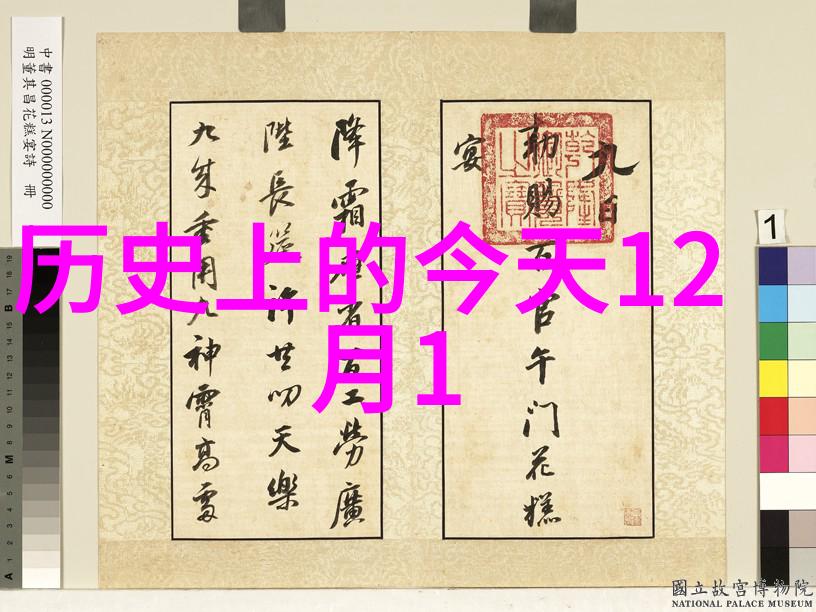 中書 000013 N000000000
明董其昌花糕宴詩 冊
九日
勅賜百官午门花糕
宴
降霜
百工勞廣
陛長筵許共叨天樂
九成重開九神霄高處
历史上的今天12
月1
1
國立故宮博物院
NATIONAL PALACE MUSEUM